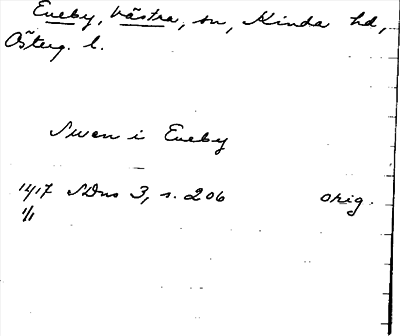 Eneby, Västra, sn, Kinda hd,
Österg. l.
Swen i Eneby
1417 SDns 3, s. 206 orig.
1/1